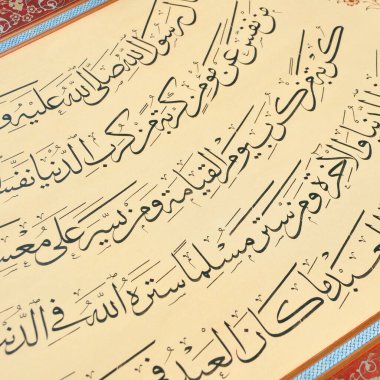 رسول الله صلى الله عليه و
من نفس عن مؤمن كربة من كرب الدنيا نفس
كربة من كرب يوم القيامة ومن يسر على معس
الدنيا والآخرة ومن ستر مسلما ستره الله في الدن
العبد ما كان العبد في